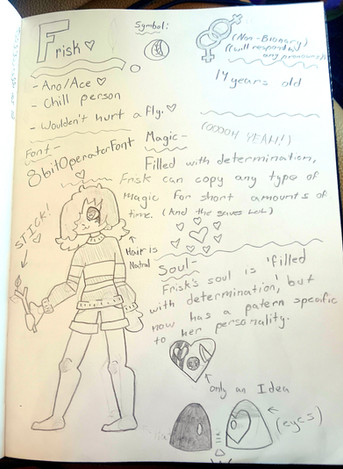 Frisk ♡
Symbol:
(Non-Bionary)
(will respond w/
any pronouns)
- Aro/Ace ♡
- Chill person
- Wouldn't hurt a fly. ♡
14 years old
(OOOOH YEAH!)
Font-
8bitOperatorFont
Magic-
Filled with determination,
Frisk can copy any type of
magic for short amounts of
time. (And the saves lol!)
STICK!
Hair is
Nutral
Soul-
Frisk's soul is 'filled
with determination', but
now has a patern specific
to her personality.
only an Idea
(eyes)